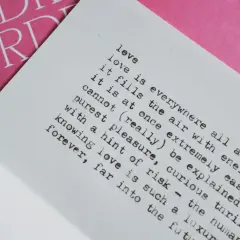 RDE
love
love is everywhere all a
it fills the air with ene
it is at once extremely eas
cannot (really) be explained
purest pleasure, curious thri
with a hint of risk - the huma
knowing love is such a luxur
forever, far into the futu